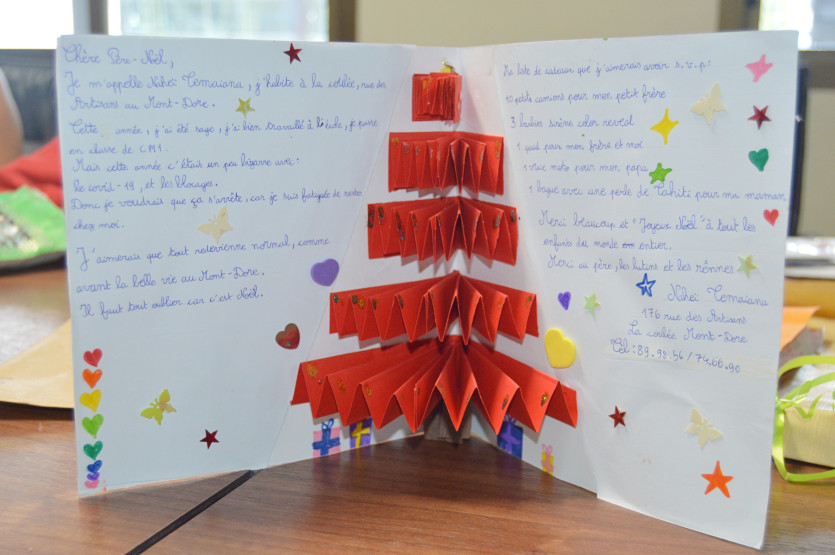 Chère Père-Noël,
Je m'appelle Nahei Temaiana, j'habite à la coulée, rue des
Artisans au Mont-Dore.
Cette année, j'ai été sage, j'ai bien travaillé à l'école, je passe
en classe de CM1.
Mais cette année c'était un peu bizarre avec:
le covid-19, et les blocages.
Donc je voudrais que ça s'arrête, car je suis fatiguée de rester
chez moi.
J'aimerais que tout redevienne normal, comme
avant la belle vie au Mont-Dore.
Il faut tout oublier car c'est Noël.
Ma liste de cadeaux que j'aimerais avoir s.v.p:
10 petits camions pour mon petit frère
3 barbies sirène color reveal
1 quad pour mon frère et moi
1 vrai moto pour mon papa
1 bague avec une perle de Tahiti pour ma maman
Merci beaucoup et "Joyeux Noël" à tout les
enfants du monde entier.
Merci au père, les lutins et les rênnes
Nahei Temaiana
176 rue des Artisans
La coulée Mont-Dore
Tél: 89.98.56 / 74.66.90